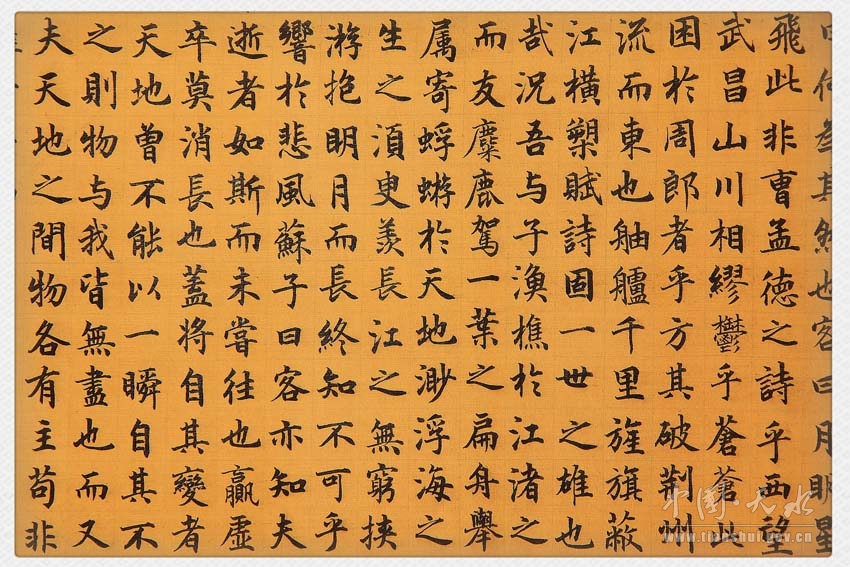 曰何為其然也客曰月明星
飛此非曹孟德之詩乎西望
武昌山川相繆鬱乎蒼蒼此
困於周郎者乎方其破荆州
流而東也舳艫千里旌旗蔽
江橫槊賦詩固一世之雄也
哉況吾与子漁樵於江渚之
而友麋鹿駕一葉之扁舟舉
属寄蜉蝣於天地渺浮海之
生之須臾羨長江之無窮挾
游抱明月而長終知不可乎
響於悲風蘇子曰客亦知夫
逝者如斯而未嘗往也贏虛
卒莫消長也蓋将自其變者
天地曾不能以一瞬自其不
之則物与我皆無盡也而又
夫天地之間物各有主苟非
中国·天水
www.tianshui.gov.cn